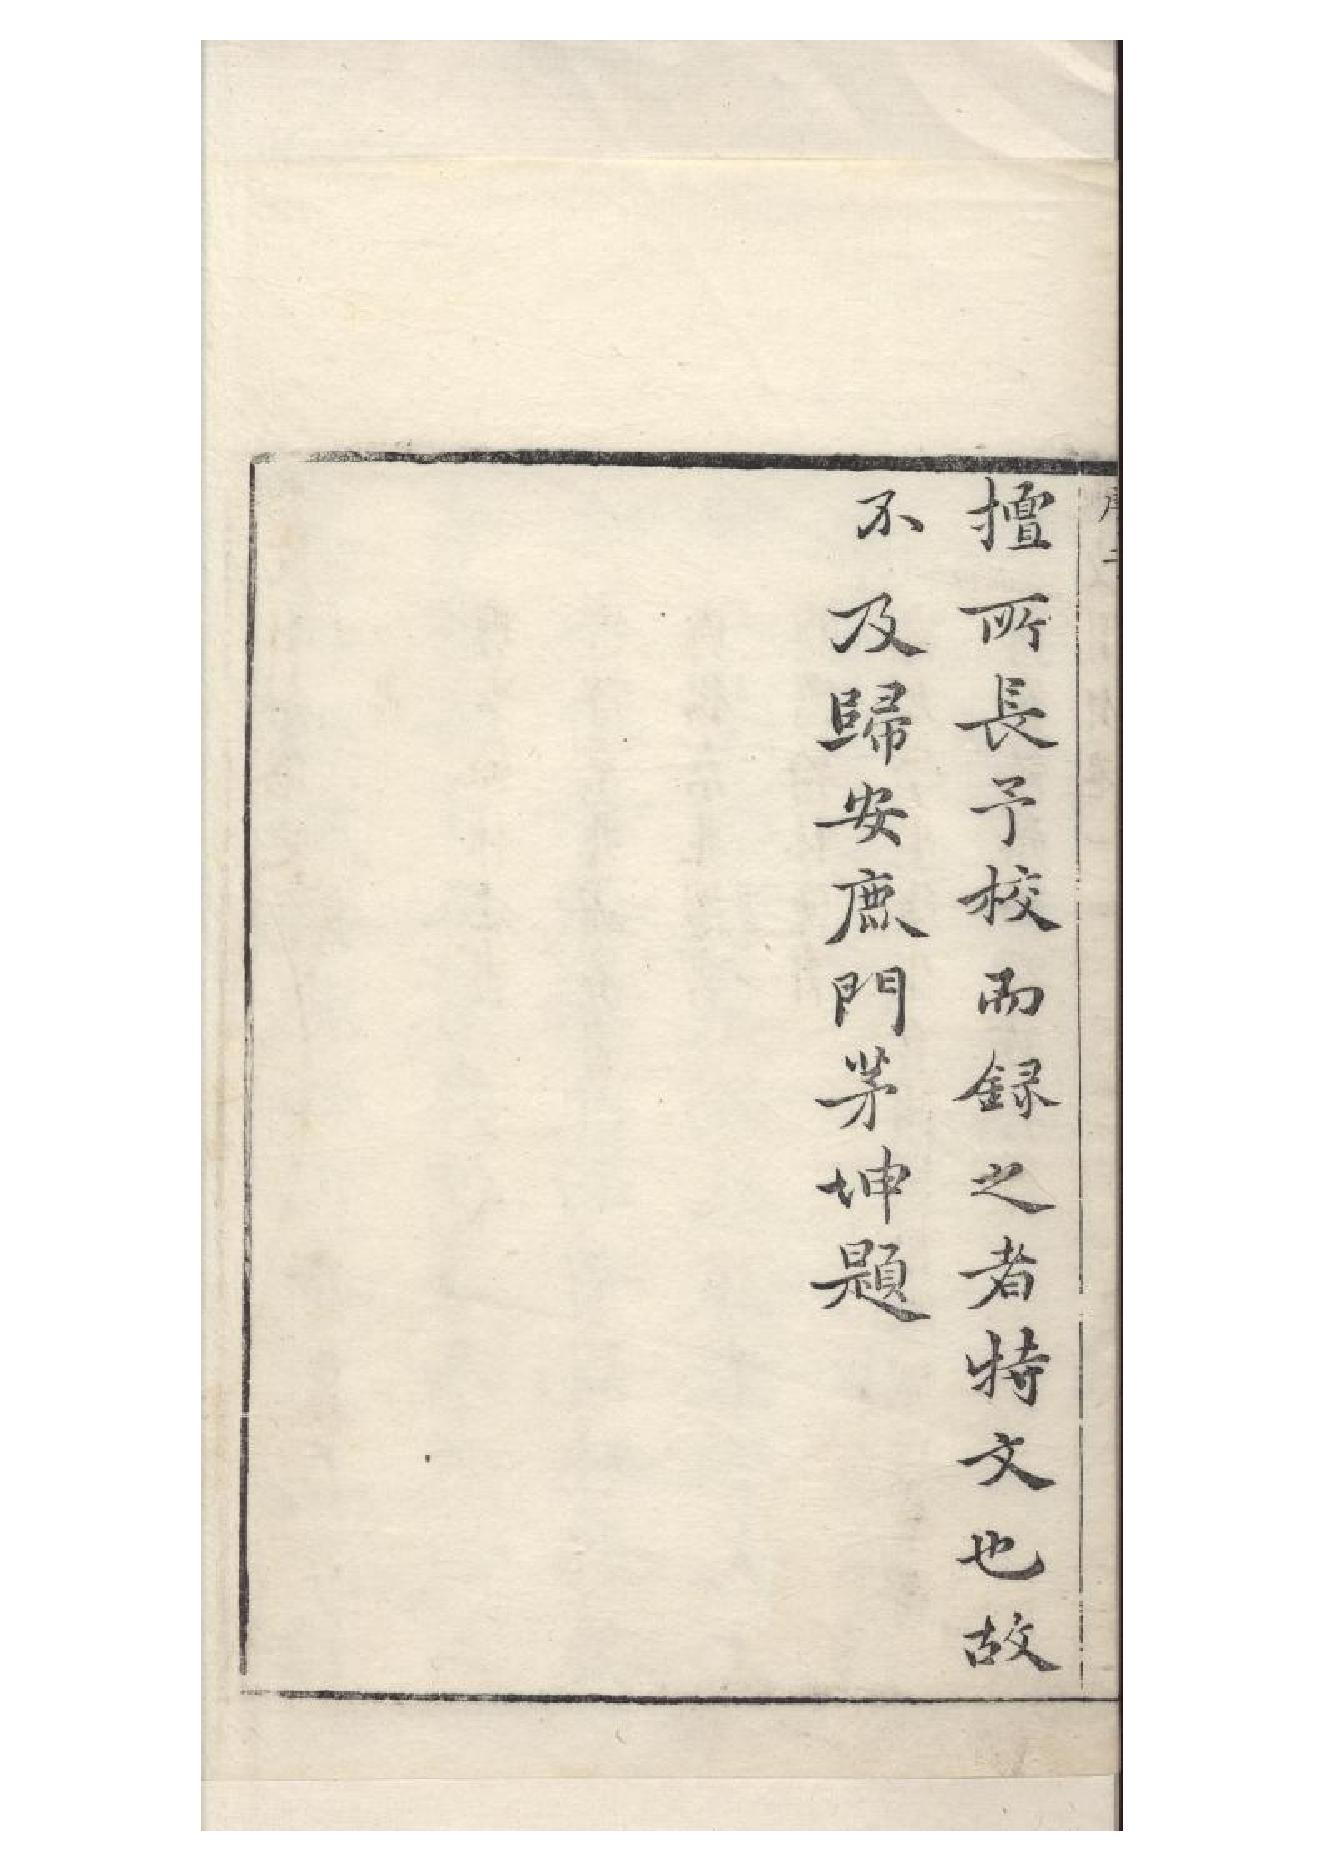 擅所長予校而録之者特文也故
不及歸安鹿門茅坤題